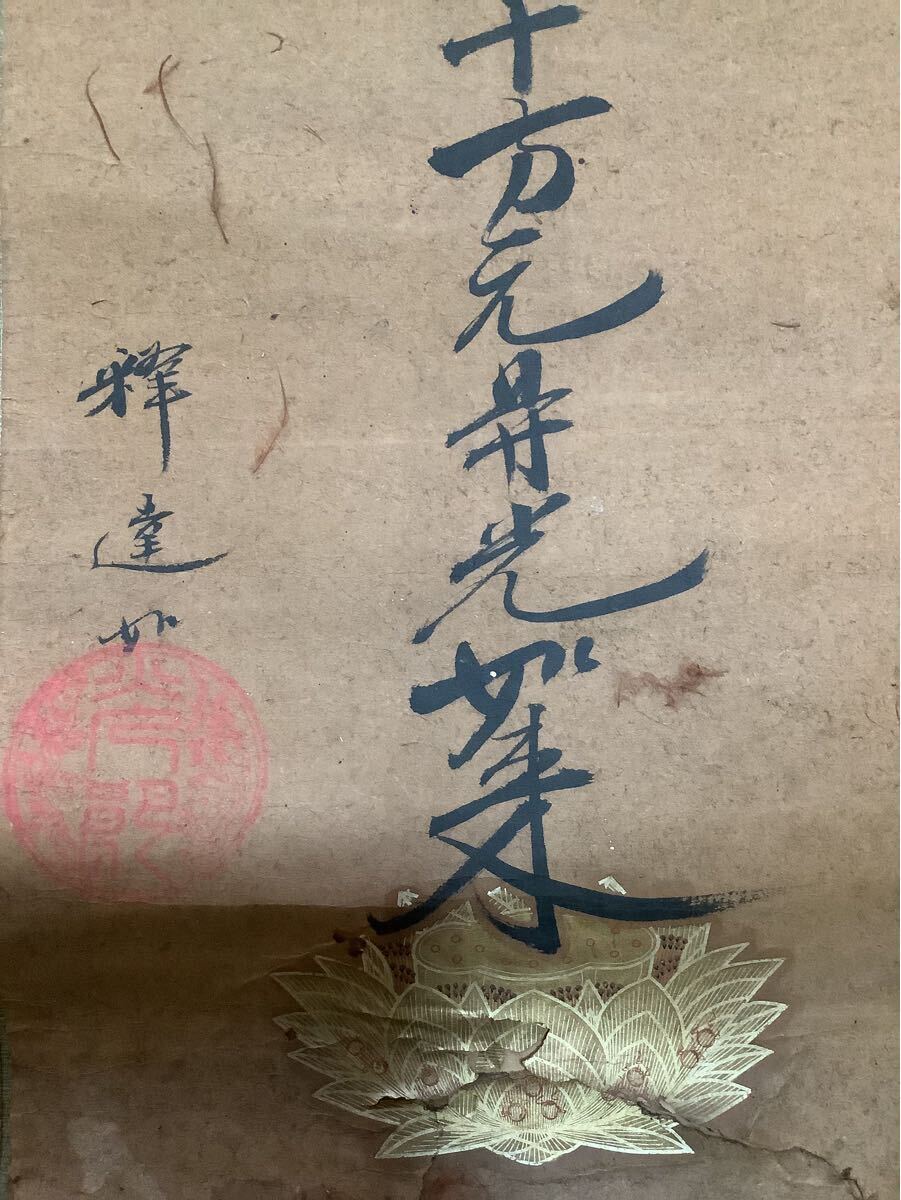 十方无㝵光如来
釋達如